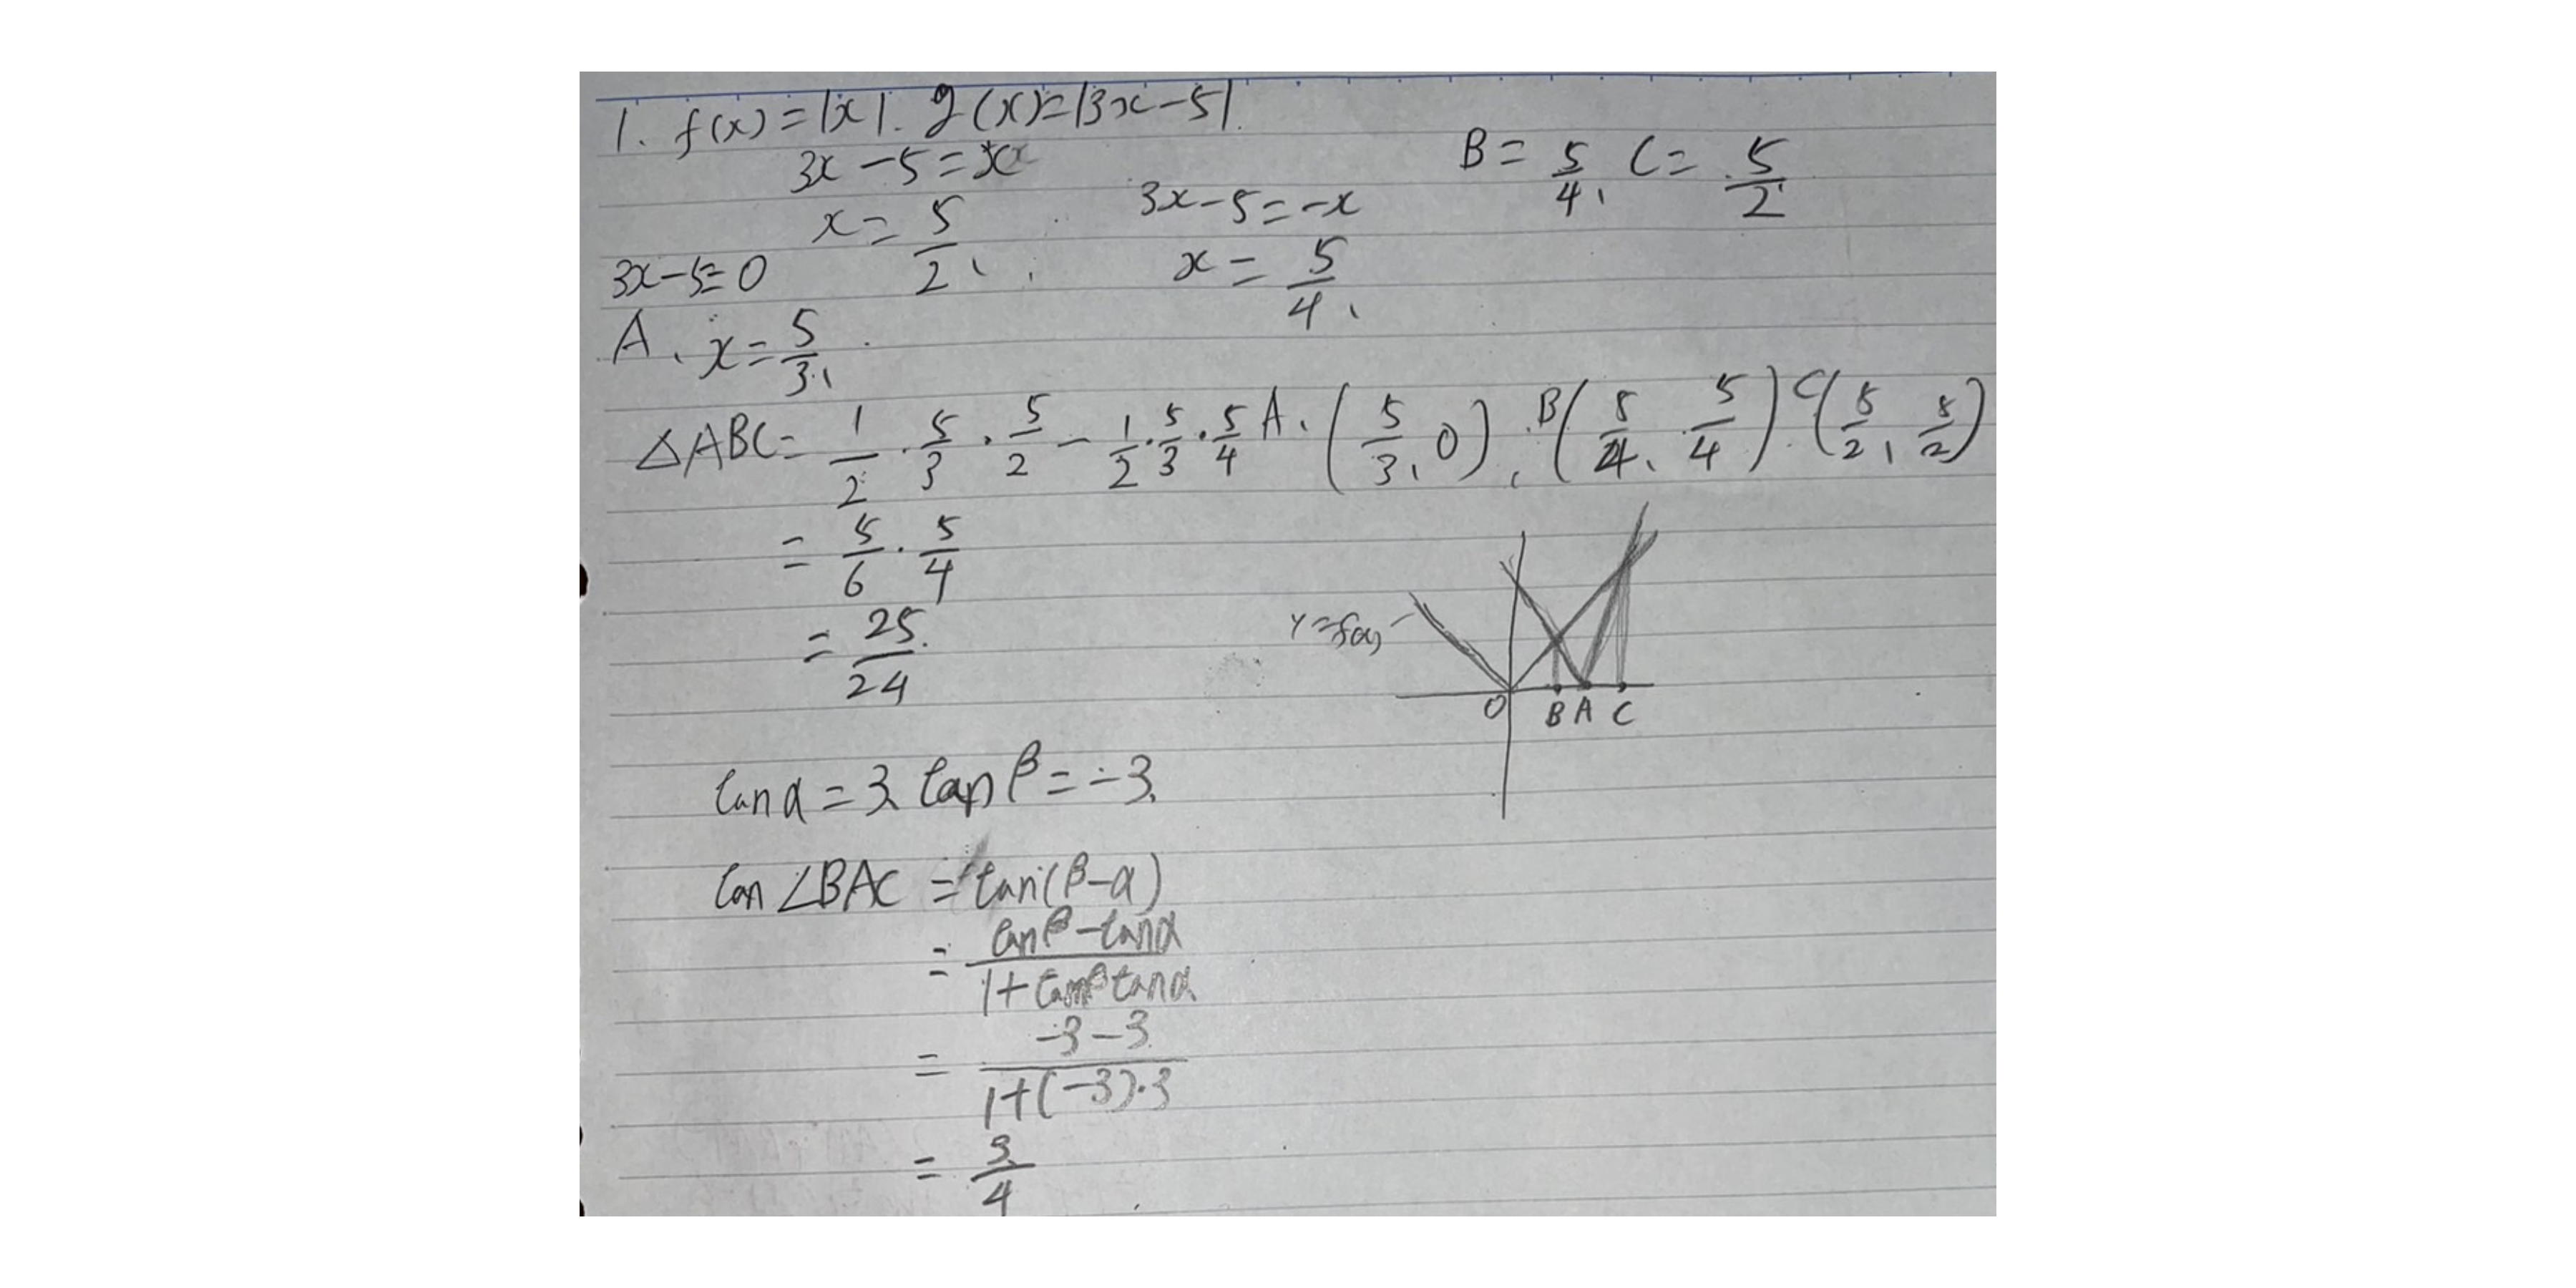 1. f(x)=|x|. g(x)=|3x-5|.
3x-5=x
x=5/2
3x-5=-x
x=5/4
B=5/4, C=5/2
3x-5=0
A. x=5/3
△ABC=1/2·5/3·5/2-1/2·5/3·5/4
A.(5/3, 0), B(5/4, 5/4) C(5/2, 5/2)
=5/6·5/4
=25/24
y=f(x)
O B A C
tanα=3, tanβ=-3.
tan∠BAC=tan(β-α)
=(tanβ-tanα)/(1+tanβtanα)
=(-3-3)/(1+(-3)·3)
=3/4